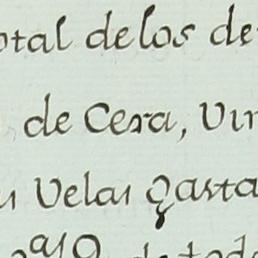 otal de los de
de Cera, Vin
Velas Gasta
de tod